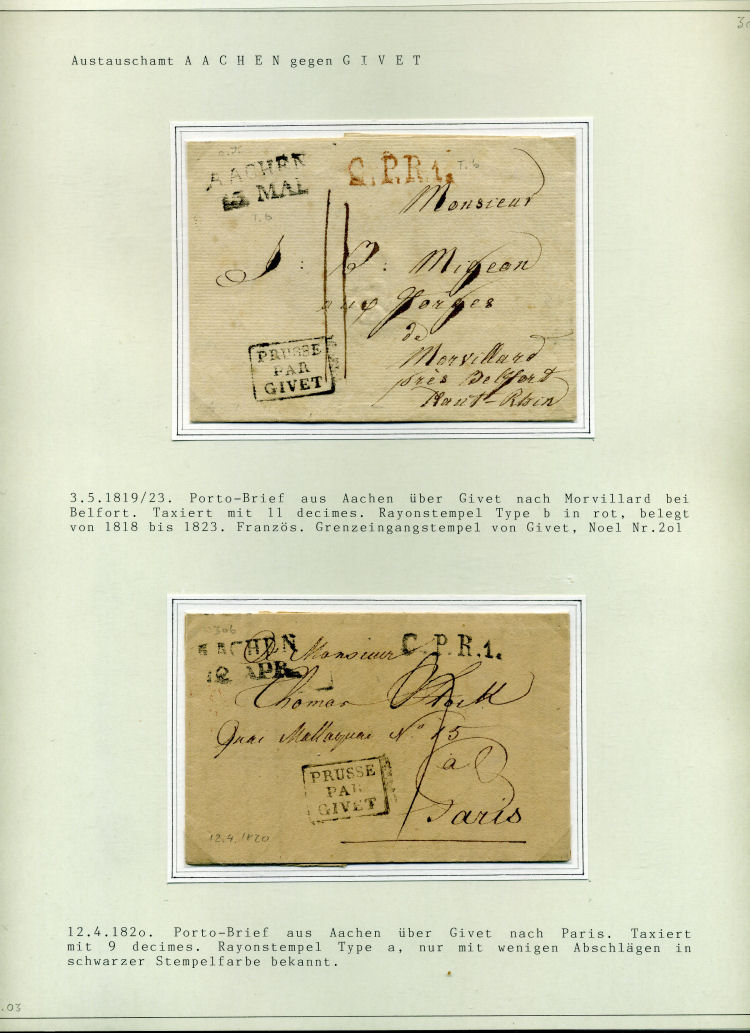 30
Austauschamt A A C H E N gegen G I V E T
AACHEN
MAI
C.P.R.1.
T. b
T. b
Monsieur
J : P : Migeon
aux forges
de
Morvillard
près Belfort
Haut-Rhin
PRUSSE
PAR
GIVET
3.5.1819/23. Porto-Brief aus Aachen über Givet nach Morvillard bei
Belfort. Taxiert mit 11 decimes. Rayonstempel Type b in rot, belegt
von 1818 bis 1823. Französ. Grenzeingangstempel von Givet, Noel Nr.2o1
306
AACHEN
12 APR.
C.P.R.1.
A Monsieur
Thomas
Quai Mallaquai N° 15
à
Paris
PRUSSE
PAR
GIVET
12.4.1820
12.4.182o. Porto-Brief aus Aachen über Givet nach Paris. Taxiert
mit 9 decimes. Rayonstempel Type a, nur mit wenigen Abschlägen in
schwarzer Stempelfarbe bekannt.
.03